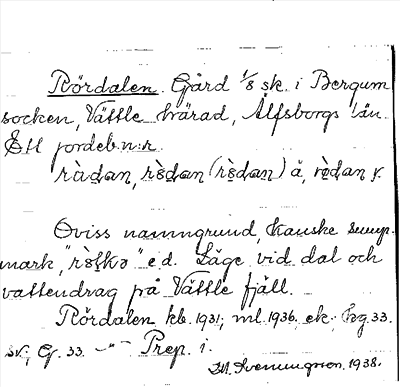 Rördalen. Gård 1/8 sk. i Bergum
socken, Vättle härad, Älfsborgs län.
Ett jordeb.n:r.
Oviss namngrund, kanske sump-
mark, e.d. Läge vid dal och
vattendrag på Vättle fjäll.
Rördalen kb. 1931, ml. 1936, ek. hg. 33.
sv., G. 33. -"- Prep. i.
1938.